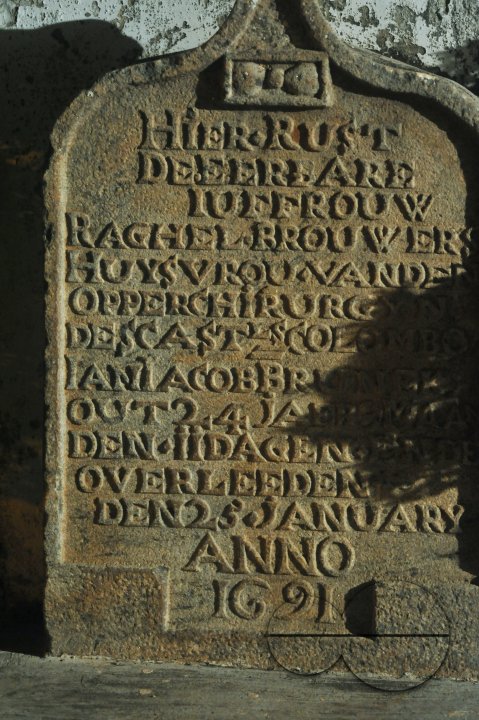 HIER·RUST
DE·EERBARE
IUFFROUW
RACHEL·BROUWERS
HUYSVROU·VAN DEN
OPPERCHIRURGYN
DES CAST^LS COLOMBO
IAN IACOB
OUT 24 JAER
DEN·11 DAGEN
OVERLEEDEN
DEN 25·JANUARY
ANNO
1691